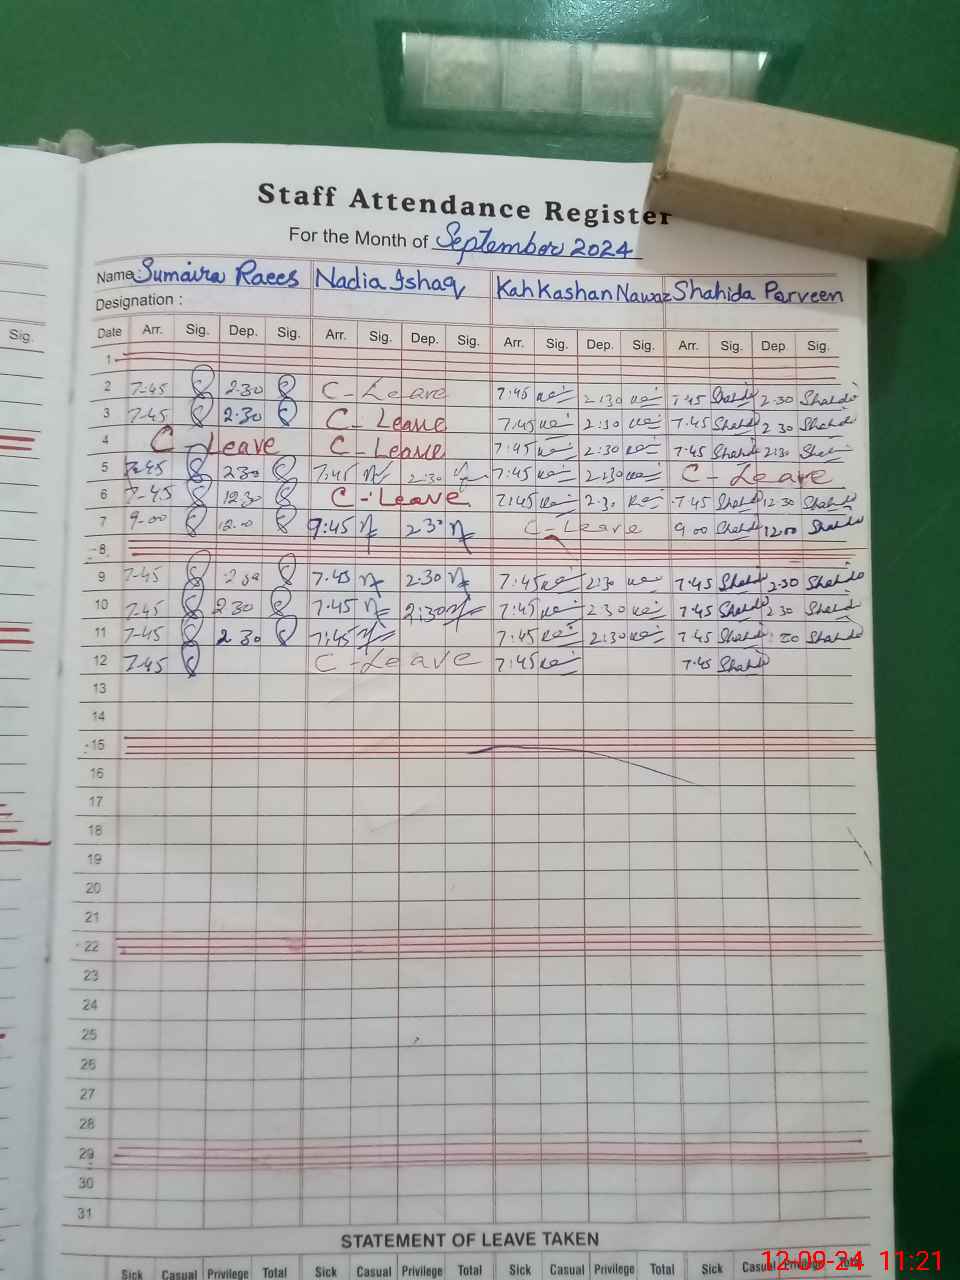 Staff Attendance Register
For the Month of September 2024
Name Sumaira Raees Nadia Ishaq Kahkashan Nawaz Shahida Parveen
Designation :
Sig.
Date Arr. Sig. Dep. Sig. Arr. Sig. Dep. Sig. Arr. Sig. Dep. Sig. Arr. Sig. Dep. Sig.
1
2 7-45 2.30 C-Leave 7:45 2:30 7.45 Shahida 2.30 Shahida
3 7-45 2.30 C-Leave 7:45 2:30 7.45 Shahida 2 30 Shahida
4 C-Leave C-Leave 7:45 2:30 7.45 Shahida 2:30
5 7-45 230 7:45 2:30 7:45 2:30 C-Leave
6 7-45 1230 C-Leave 7:45 2:30 7.45 Shahida 12.30 Shahida
7 9-00 12.00 9:45 2.30 C-Leave 9 00 Shahida 12.00 Shahida
8
9 7-45 7.45 2.30 7:45 2:30 7.45 Shahida 2.30 Shahida
10 7.45 2 30 7.45 2:30 7:45 2:30 7.45 Shahida 2 30 Shahida
11 7-45 2 30 7:45 7:45 2:30 7.45 Shahida Shahida
12 7-45 C-Leave 7:45 7.45 Shahida
13
14
15
16
17
18
19
20
21
22
23
24
25
26
27
28
29
30
31
STATEMENT OF LEAVE TAKEN
Sick Casual Privilege Total Sick Casual Privilege Total Sick Casual Privilege Total Sick Casual Privilege Total
12-09-24 11:21